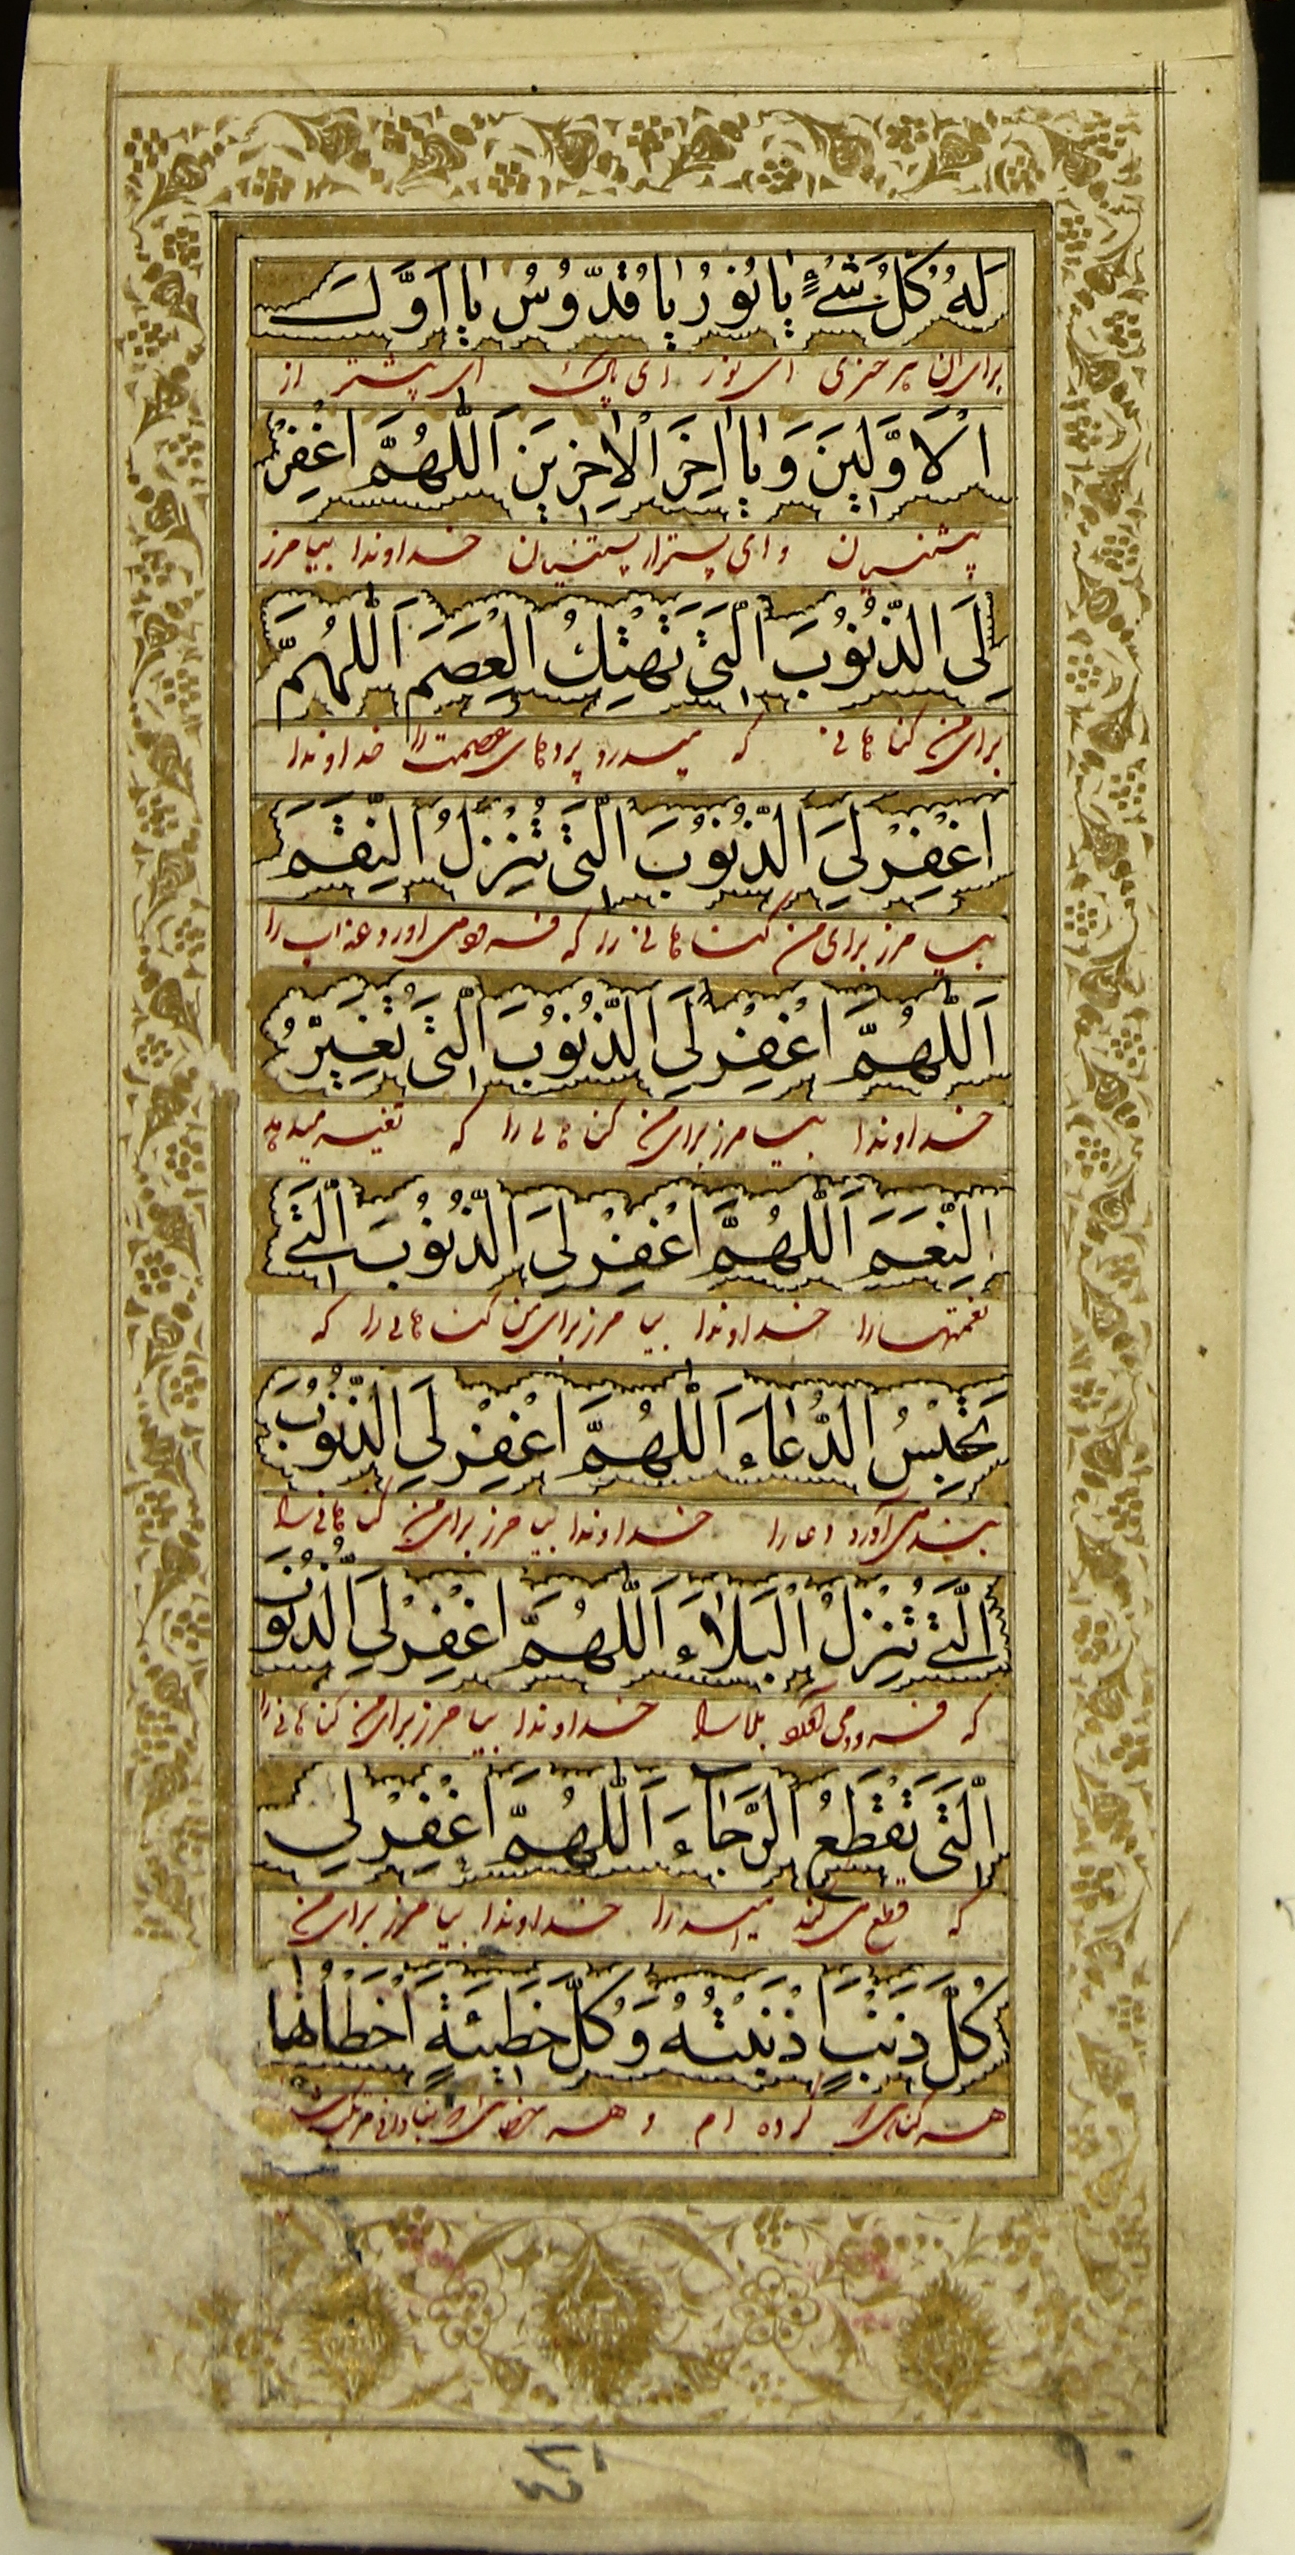 لَهُ كُلُّ شَیْءٍ یا نُورُ یا قُدُّوسُ یا اَوَّلَ
برای آن هر چیزی ای نور ای پاک ای پیشتر از
الْاَوَّلینَ وَ یا اخِرَ الْاخِرینَ اَللّهُمَّ اغْفِرْ
پیشینیان و ای پستر از پسینیان خداوندا بیامرز
لِیَ الذُّنُوبَ الَّتی تَهْتِكُ الْعِصَمَ اَللّهُمَّ
برای من گناهانی که میدرد پردهای عصمت را خداوندا
اغْفِرْ لِیَ الذُّنُوبَ الَّتی تُنْزِلُ النِّقَمَ
بیامرز برای من گناهانی را که فرود می اورد عذاب را
اَللّهُمَّ اغْفِرْ لِیَ الذُّنُوبَ الَّتی تُغَیِّرُ
خداوندا بیامرز برای من گناهانی را که تغییر میدهد
النِّعَمَ اَللّهُمَّ اغْفِرْ لِیَ الذُّنُوبَ الَّتی
نعمتها را خداوندا بیامرز برای من گناهانی را که
تَحْبِسُ الدُّعاءَ اَللّهُمَّ اغْفِرْ لِیَ الذُّنُوبَ
بند می آورد دعا را خداوندا بیامرز برای من گناهانی را
الَّتی تُنْزِلُ الْبَلاءَ اَللّهُمَّ اغْفِرْ لِیَ الذُّنُوبَ
که فرود می بلا را خداوندا بیامرز برای من گناهانی را
الَّتی تَقْطَعُ الرَّجاءَ اَللّهُمَّ اغْفِرْ لی
که قطع می کند امید را خداوندا بیامرز برای من
كُلَّ ذَنْبٍ اَذْنَبْتُهُ وَ كُلَّ خَطیئَةٍ اَخْطَأْتُها
همه گناهی را کرده ام و همه خطای